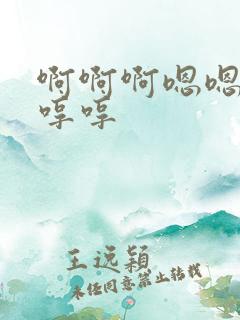 啊啊啊嗯嗯
哼哼
王远颖
未经同意禁止转载